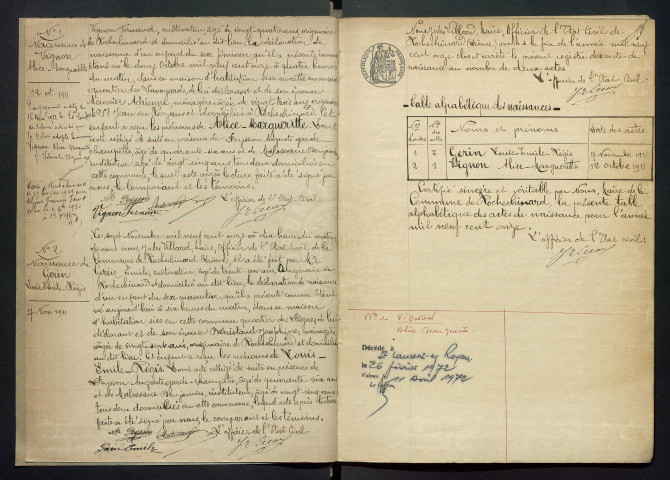 No 1
Naissance de
Vignon
Alice Marguerite
12 oct. 1911
Vignon Fernand, cultivateur, âgé de vingt quatre ans, originaire
de Rochechinard et domicilié au dit lieu, la déclaration de
naissance d'un enfant du sexe féminin, qu'il a présenté comme
étant né le douze Octobre mil neuf cent onze à quatre heures
du matin, dans sa maison d'habitation sise en cette commune
quartier des
Meunier Adrienne, ménagère, âgée de vingt trois ans, originaire
de St Jean en Royans et domiciliée à Rochechinard. Et cet
enfant a reçu les prénoms de Alice-Marguerite. Dont
acte rédigé de suite en présence de Peysson Auguste garde-
champêtre, âgé de quarante six ans et de Malossane Benjamin
instituteur âgé de vingt cinq ans tous deux domiciliés en
cette commune, lequel acte après lecture faite a été signé par
nous, le comparant et les témoins.
L'officier de l'Etat Civil
Vignon Fernand
No 2
Naissance de
Gerin
Louis Emile Régis
7 Nov. 1911
Le sept Novembre mil neuf cent onze à dix heures du matin,
devant nous Jules Villard, Maire, officier de l'Etat Civil de la
Commune de Rochechinard (Drôme), il a été fait par Mr
Gerin Emile, cultivateur, âgé de trente un ans, originaire de
Rochechinard et domicilié au dit lieu, la déclaration de naissance
d'un enfant du sexe masculin, qu'il a présenté comme étant
né aujourd'hui à six heures du matin, dans sa maison
d'habitation sise en cette commune quartier des
déclarant et de son épouse Béristand Joséphine, ménagère
âgée de vingt sept ans, originaire de Rochechinard et domiciliée
au dit lieu. Et enfant a reçu les prénoms de Louis-
Emile-Régis. Dont acte rédigé de suite en présence de
Peysson Auguste garde-champêtre, âgé de quarante six ans
et de Malossane Benjamin, instituteur, âgé de vingt cinq ans
tous deux domiciliés en cette commune, lequel acte après lecture
faite a été signé par nous, le comparant et les témoins.
L'officier de l'Etat Civil
Gerin Emile
Nous, Jules Villard, Maire, Officier de l'Etat Civil de
Rochechinard (Drôme), avons à la fin de l'année mil neuf
cent onze clos et arrêté le présent registre des actes de
naissance au nombre de deux actes.
L'officier de l'Etat Civil:
Table alphabétique des naissances
Nos d'ordre Nos des actes Noms et prénoms Date des actes
1 2 Gerin Louis-Emile-Régis 7 Novembre 1911
2 1 Vignon Alice-Marguerite 12 octobre 1911
Certifié sincère et véritable par Nous, Maire de la
Commune de Rochechinard, la présente table
alphabétique des actes de naissance pour l'année
mil neuf cent onze.
L'officier de l'Etat civil:
No 1 VIGNON
Alice Marguerite
Décédé à
St Laurent en Royans
le 26 février 1972
11 Avril 1972